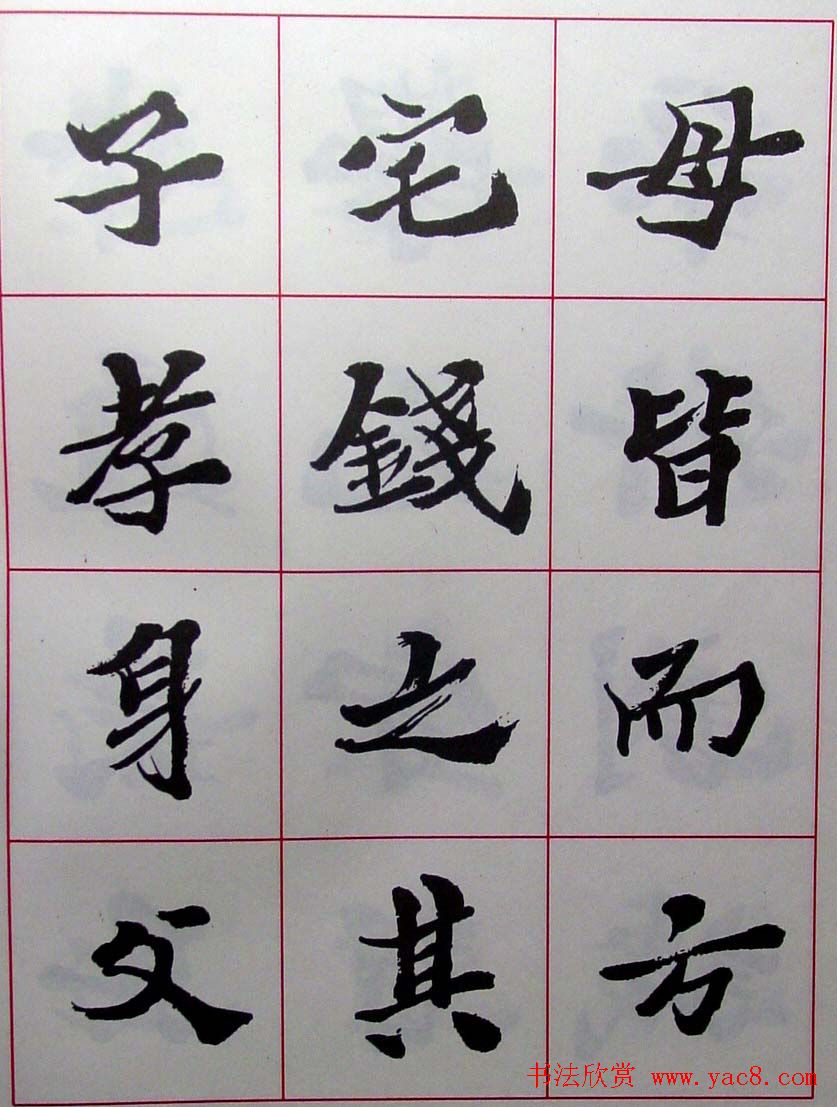 母皆而方
宅錢之其
子孝身父
书法欣赏 www.yac8.com